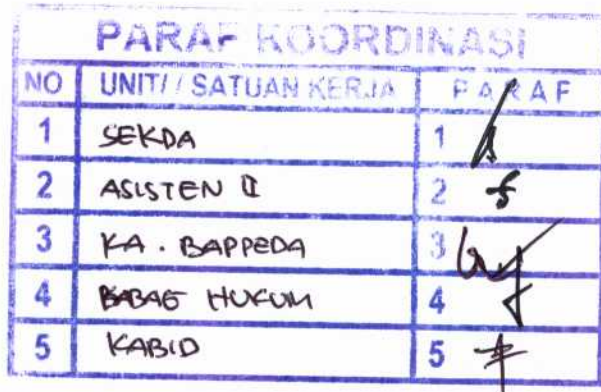 PARAF KOORDINASI
NO UNIT / SATUAN KERJA PARAF
1 SEKDA 1
2 ASISTEN II 2
3 KA. BAPPEDA 3
4 KABAG HUKUM 4
5 KABID 5